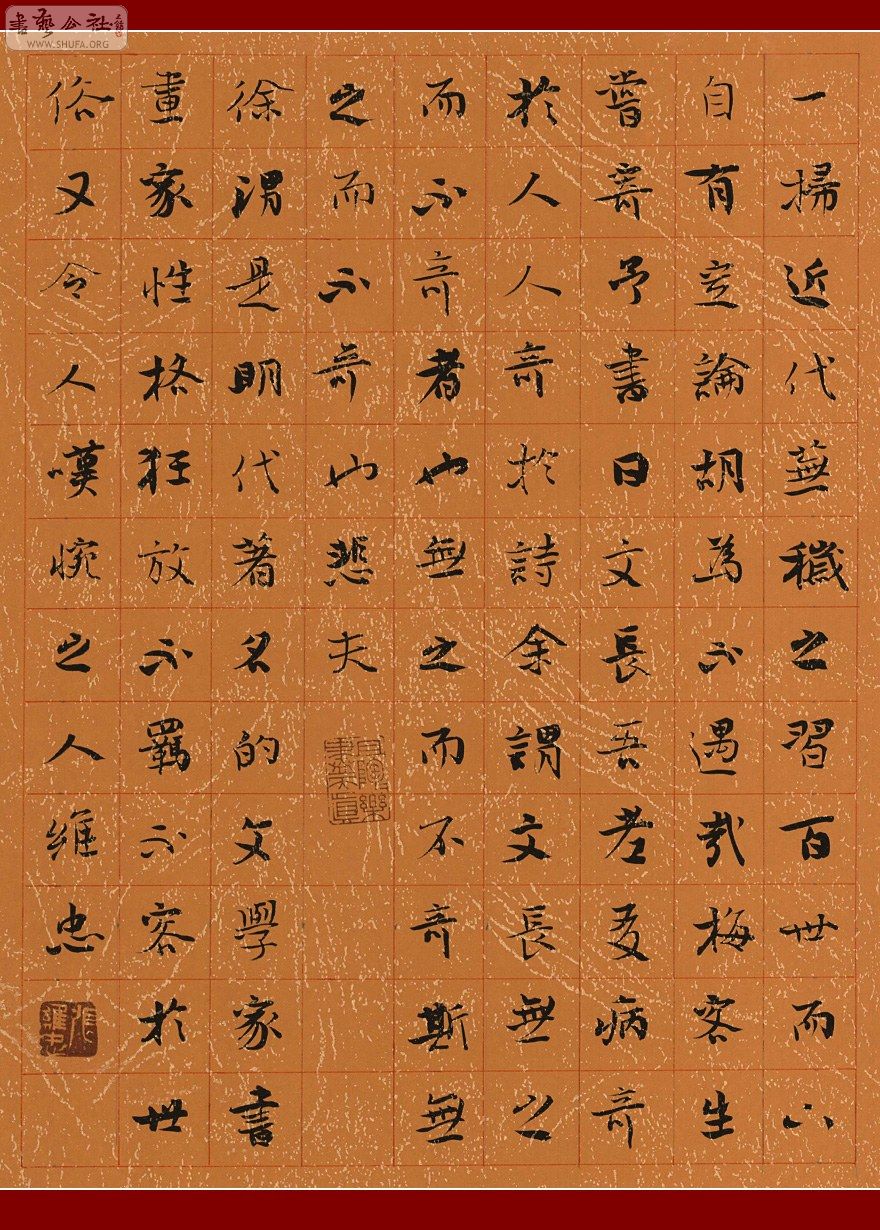 書藝公社
WWW.SHUFA.ORG
一掃近代蕪穢之習百世而下
自有定論胡為不遇哉梅客生
嘗寄予書曰文長吾老友病奇
於人人奇於詩余謂文長無之
而不奇者也無之而不奇斯無
之而不奇也悲夫
徐渭是明代著名的文學家書
畫家性格狂放不羈不容於世
俗又令人嘆惋之人維忠
張維忠